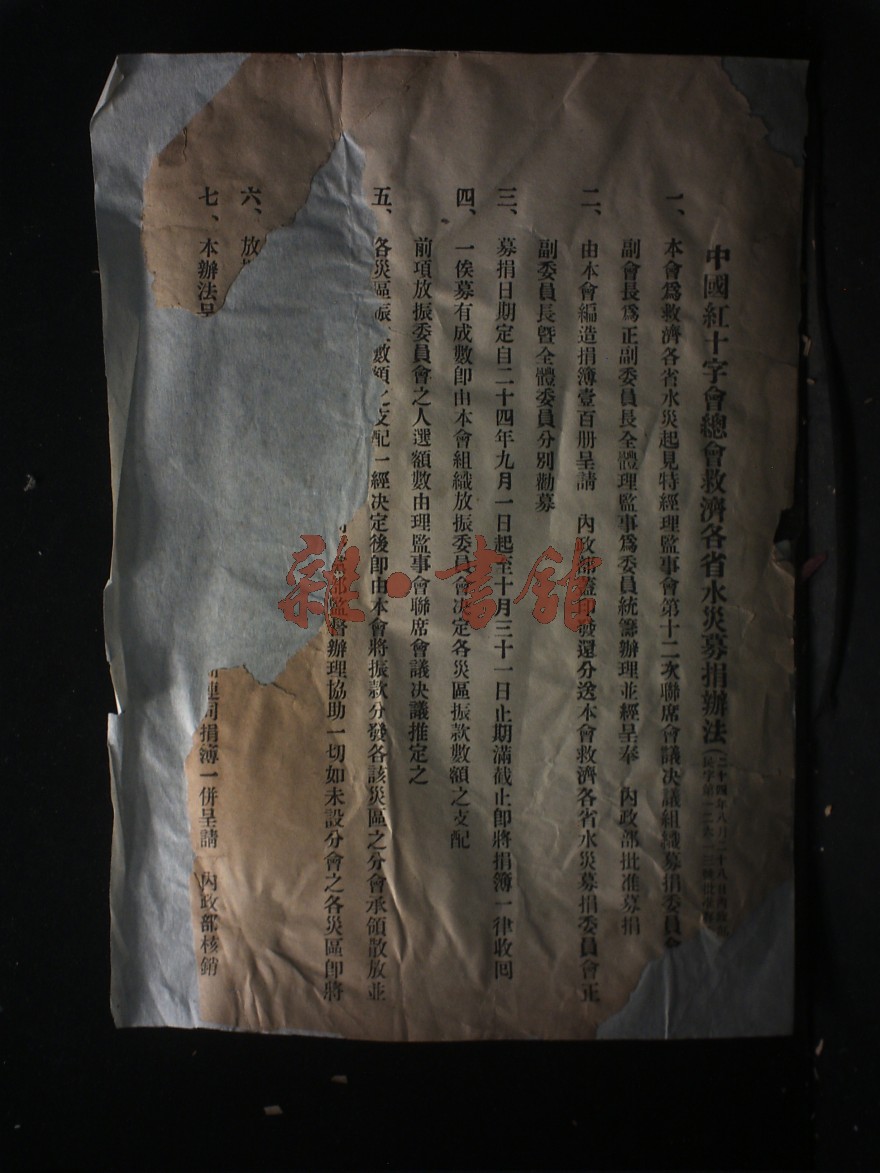 中國紅十字會總會救濟各省水災募捐辦法
(二十四年八月二十八日內政部
一、本會爲救濟各省水災起見特經理監事會第十二次聯席會議決議組織募捐委員會
副會長爲正副委員長全體理監事爲委員統籌辦理並經呈奉 內政部批准募捐
二、由本會編造捐簿壹百册呈請 內政部蓋印發還分送本會救濟各省水災募捐委員會正
副委員長曁全體委員分別勸募
三、募捐日期定自二十四年九月一日起至十月三十一日止期滿截止卽將捐簿一律收回
四、一俟募有成數卽由本會組織放振委員會決定各災區振款數額之支配
前項放振委員會之人選額數由理監事會聯席會議決議推定之
五、各災區振 數額之支配一經決定後卽由本會將振款分發各該災區之分會承領散放並
黨部監督辦理協助一切如未設分會之各災區卽將
六、放
七、本辦法呈
連同捐簿一併呈請 內政部核銷
雜·書館